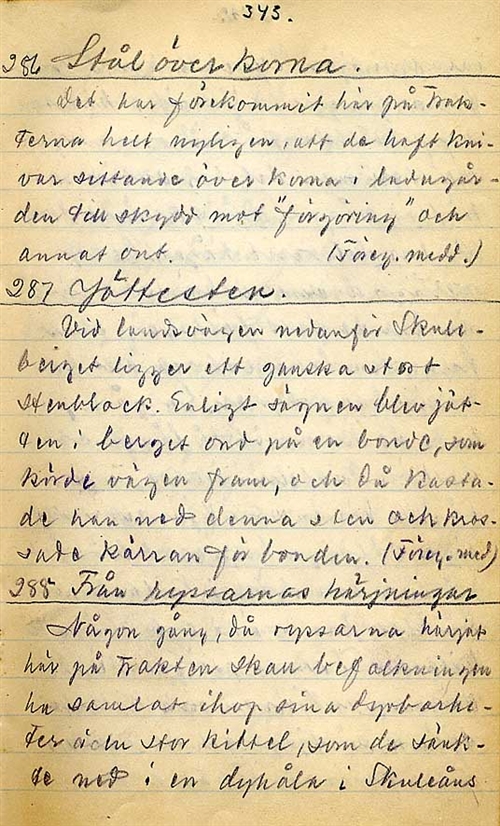 343.
286 Stål över korna.
Det har förekommit här på trak-
terna helt nyligen, att de haft kni-
var sittande över korna i ladugår-
den till skydd mot "förgöring" och
annat ont. (Föreg. medd.)
287 Jättesten.
Vid landsvägen nedanför Skule-
berget ligger ett ganska stort
stenblock. Enligt sägnen blev jät-
ten i berget ond på en bonde, som
körde vägen fram, och då kasta-
de han ned denna sten och kros-
sade kärran för bonden. (Föreg. med)
288 Från ryssarnas härjningar
Någon gång, då ryssarna härjat
här på trakten skall befolkningen
ha samlat ihop sina dyrbarhe-
ter i en stor kittel, som de sänk-
te ned i en dyhåla i Skuleåns